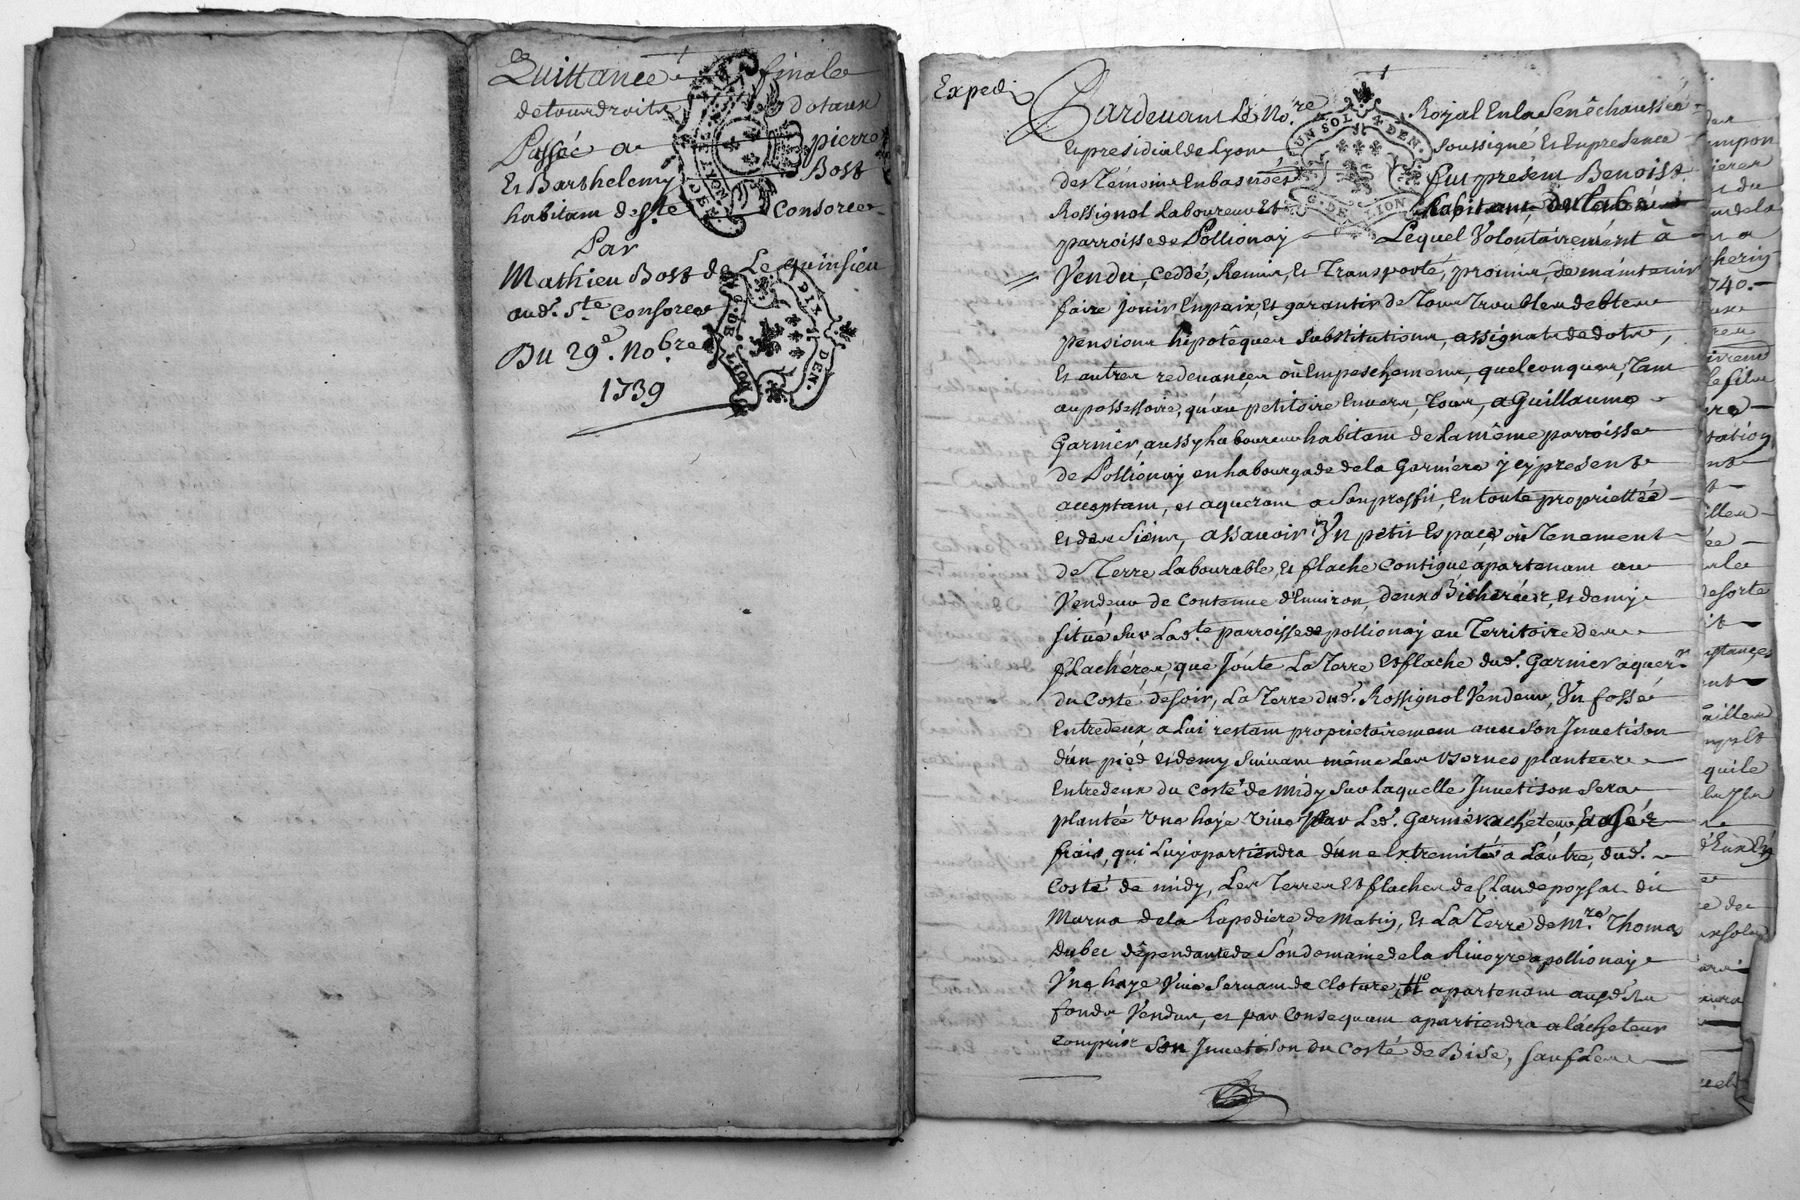 Quittance finale
de tous droits dotaux
Passée a pierre
Et Barthelemy Bost
habitans de Ste Consorce
Par
Mathieu Bost de Le quinsieu
aud. Ste Consorce
Du 29e. Nobre
1739
GEN. DE LYON
G. DE LION DIX DEN.
Expedié
UN SOL 4 DEN.
G. DE LION
Pardevant Le No.re Royal En la Senéchaussée
Et presidial de Lyon Soussigné Et En presence
des Témoins En bas nõés fut présent Benoist
Rossignol Laboureur Et habitant de la
parroisse de Pollionay Lequel Volontairement à
Vendu, Ceddé, Remis, Et Transporté, promis, de maintenir
faire Jouir En paix, Et garantir de Tous Troubles debtes
pensions hipotêques Substitutions, assignats de dote,
Et autres redevances où Empeschemens, quelconques, Tant
au possessoire, qu'au petitoire Envers, Tous, a Guillaume
Garnier, aussy Laboureur habitant de la même parroisse
de Pollionay en la bourgade de la Garniere y cy present
acceptant, et aquerant a Son proffit, En toute proprietté
Et des Siens, assavoir Un petit Espace où Tenement
de Terre Labourable, Et flache Contigue apartenant au
Vendeur de Contenue d'Environ, deux Bicherées, Et demy
situé Sur Lad.te parroisse de pollionay au Territoire des
flachéres, que Joúte La Terre Et flache dud. Garnier aquer.r
du Costé de soir, La Terre dud. Rossignol Vendeur, Un fossé
Entredeux a Lui restant proprietairement avec Son Invetison
d'un pied Et demy Suivant même Les Bornes plantées
Entredeux du Costé de Midy Sur Laquelle Invetison Sera
planté Une haye Vive par Led. Garnier acheteur Et a Ses
frais, qui Luy apartiendra d'une Extremité a Lautre, dud.
Costé de midy, Les Terres Et flaches de Claude poysat dit
Murna de la Rapodiere, de Matin, Et La Terre de M.re Thomas
Dubec dépendante de Son domaine de la Rivoyre a pollionay
Une haye Vive Servant de Cloture apartenant ausd. 
fonds Vendus, et par Consequant apartiendra a lácheteur
Compris Son Invetison du Costé de Bise, Sauf Les
740.